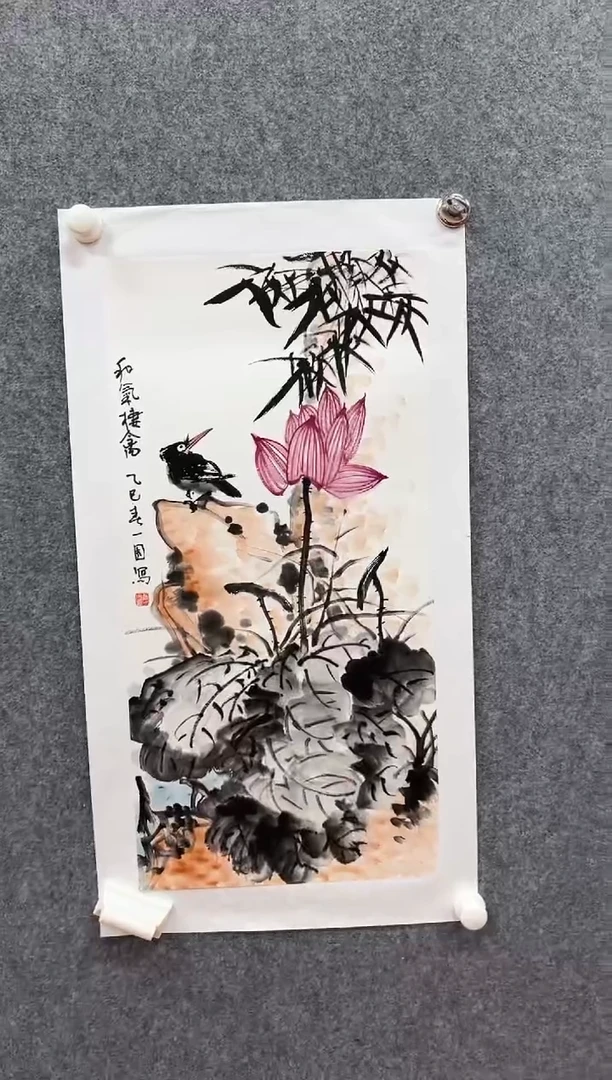 和氣棲禽
乙巳春一圃寫